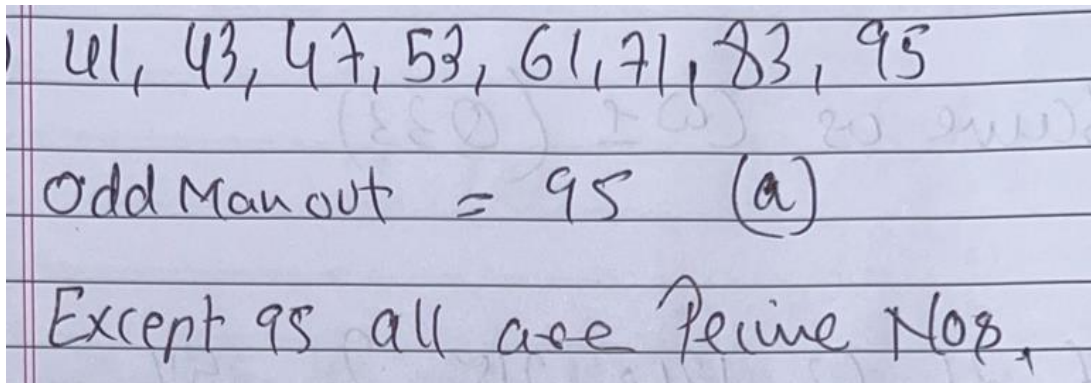 41, 43, 47, 53, 61, 71, 83, 95
Odd Man out = 95 (a)
Except 95 all are Prime Nos.